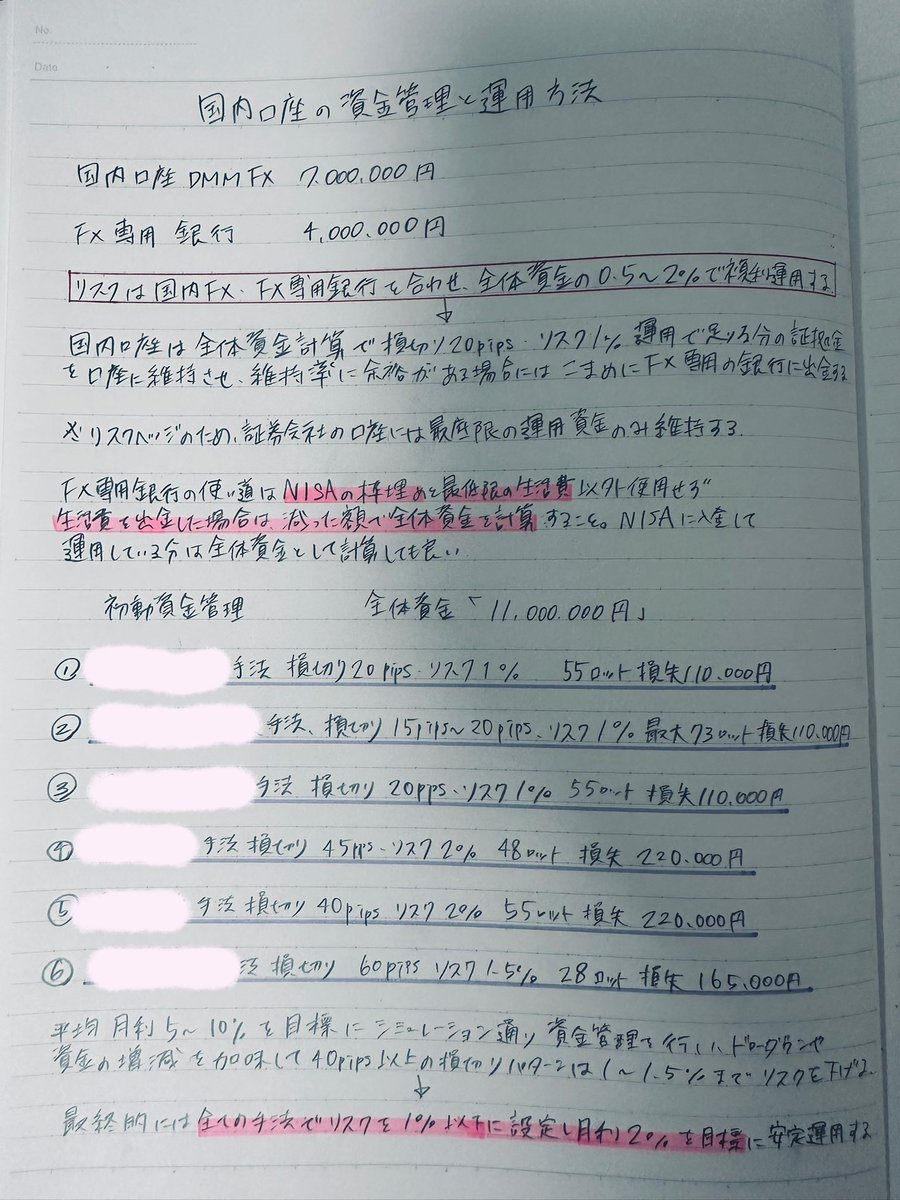 No.
Date
国内口座の資金管理と運用方法
国内口座 DMM FX 7,000,000円
FX専用 銀行 4,000,000円
リスクは国内FX・FX専用銀行を合わせ、全体資金の0.5〜2%で複利運用する
↓
国内口座は全体資金計算で損切り20pips・リスク1% 運用で足りる分の証拠金
を口座に維持させ、維持率に余裕がある場合にはこまめにFX専用の銀行に出金する
※リスクヘッジのため、証券会社の口座には最底限の運用資金のみ維持する
FX専用銀行の使い道はNISAの枠埋めと最低限の生活費以外使用せず
生活費を出金した場合は、減った額で全体資金を計算すること。NISAに入金して
運用している分は全体資金として計算しても良い
初動資金管理 全体資金「11,000,000円」
① 手法 損切り20pips・リスク1% 55ロット 損失110.000円
② 手法、損切り 15pips〜20pips・リスク1% 最大73ロット 損失110.000円
③ 手法 損切り 20pps・リスク1% 55ロット 損失110.000円
④ 手法 損切り 45pps・リスク2% 48ロット 損失 220.000円
⑤ 手法 損切り 40pips リスク2% 55ロット 損失 220.000円
⑥ 法 損切り 60pips リスク1.5% 28ロット 損失 165.000円
平均 月利5〜10%を目標にシミュレーション通り 資金管理を行い、ドローダウンや
資金の増減を加味して40pips以上の損切りパターンは1〜1.5%までリスクを下げる
↓
最終的には全ての手法でリスクを1%以下に設定し月利2%を目標に安定運用する